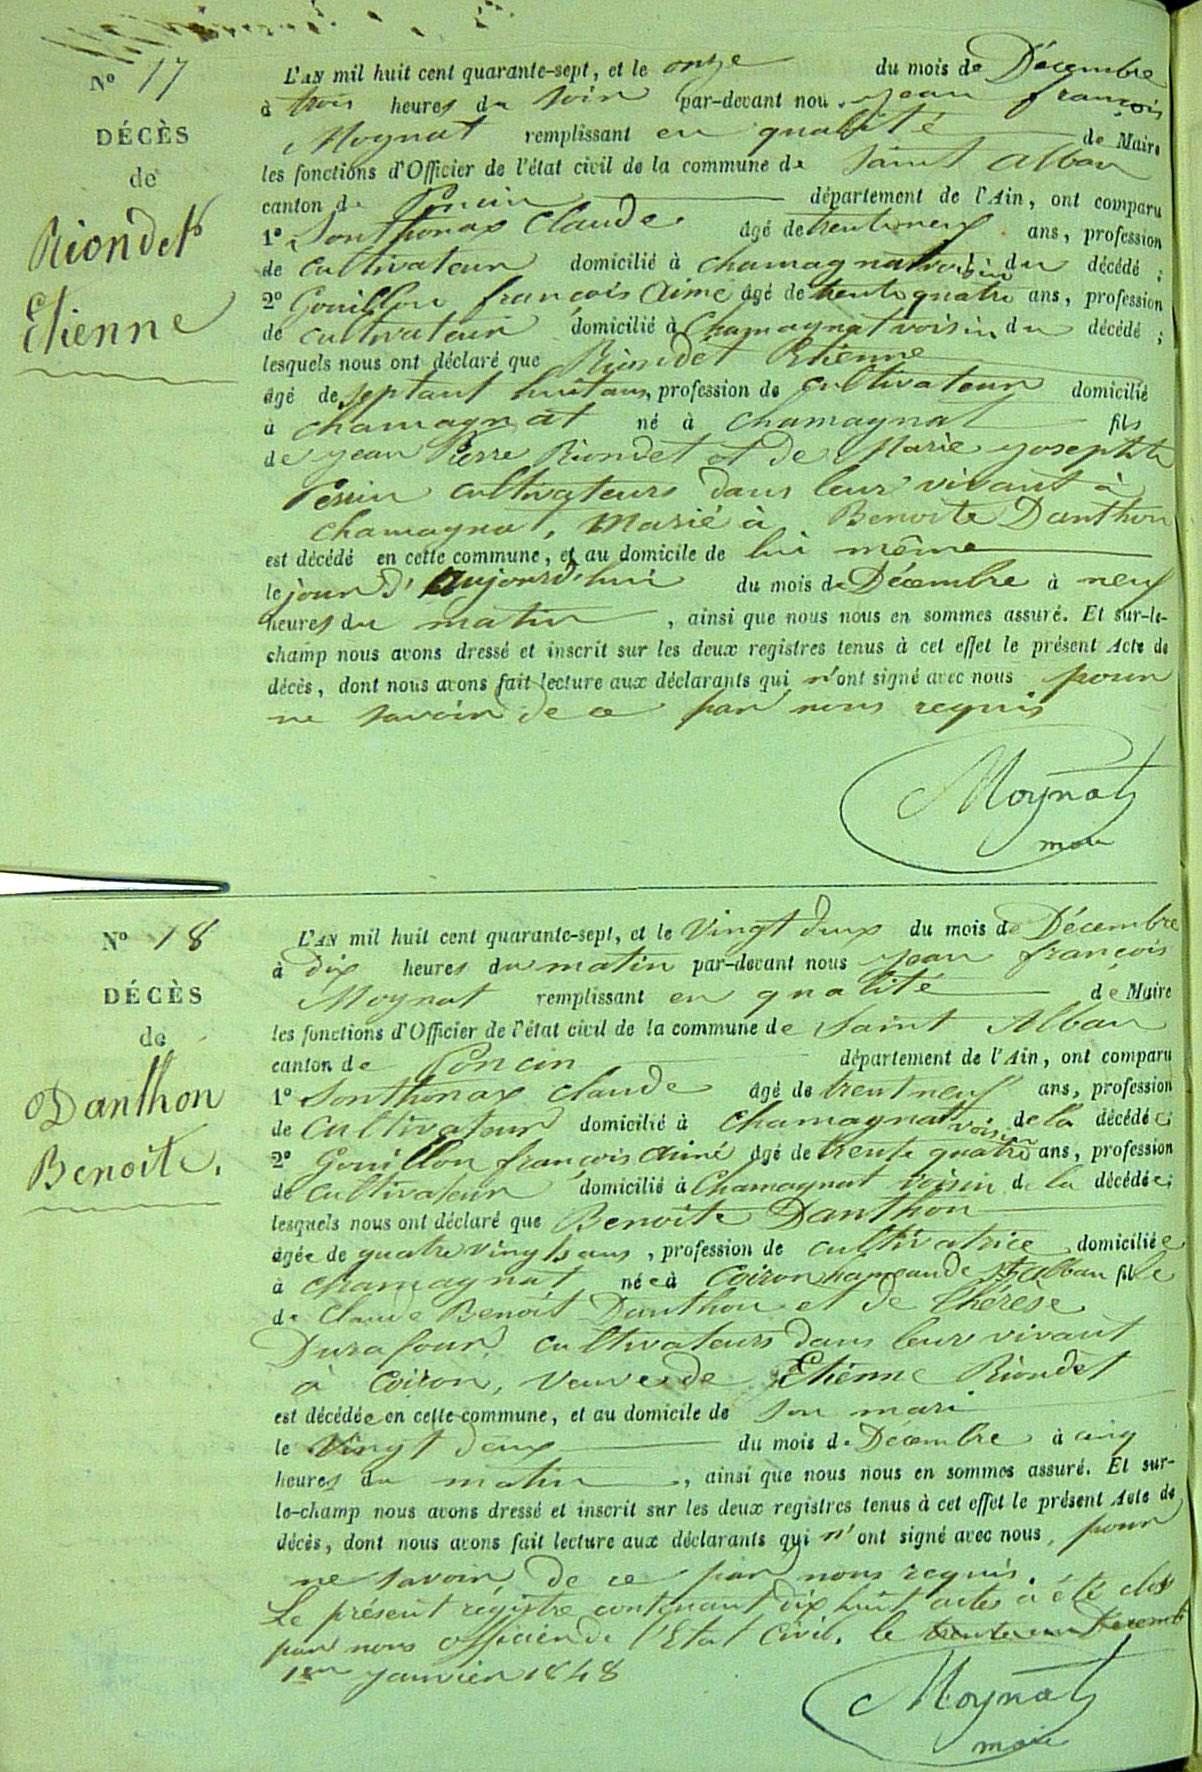 N° 17
DÉCÈS
de
Riondet
Etienne
L'AN mil huit cent quarante-sept, et le onze du mois de Décembre
à trois heures du soir par-devant nous jean françois
Moynat remplissant en qualité de Maire
les fonctions d'Officier de l'état civil de la commune de Saint Alban
canton de Poncin département de l'Ain, ont comparu
1° Sonthonax Claude âgé de trente neuf ans, profession
de cultivateur domicilié à chamagnat voisin du décédé ;
2° Gouillon françois Aimé âgé de trente quatre ans, profession
de cultivateur domicilié à Chamagnat voisin du décédé ;
lesquels nous ont déclaré que Riondet Etienne
âgé de septant huit ans, profession de cultivateur domicilié
à chamagnat né à chamagnat fils
de jean Pierre Riondet et de Marie josephte
cultivateurs dans leur vivant à
chamagnat, Marié à Benoite Danthon
est décédé en cette commune, et au domicile de lui même
le jour d'aujourd'hui du mois de Décembre à neuf
heures du matin , ainsi que nous nous en sommes assuré. Et sur-le-
champ nous avons dressé et inscrit sur les deux registres tenus à cet effet le présent Acte de
décès, dont nous avons fait lecture aux déclarants qui n'ont signé avec nous pour
ne savoir de ce par nous requis
Moynat
maire
N° 18
DÉCÈS
de
Danthon
Benoite.
L'AN mil huit cent quarante-sept, et le Vingt deux du mois de Décembre
à dix heures du matin par-devant nous jean françois
Moynat remplissant en qualité de Maire
les fonctions d'Officier de l'état civil de la commune de Saint Alban
canton de Poncin département de l'Ain, ont comparu
1° Sonthonax claude âgé de trent neuf ans, profession
de cultivateur domicilié à chamagnat voisin de la décédée ;
2° Gouillon françois Aimé âgé de trente quatre ans, profession
de cultivateur domicilié à Chamagnat voisin de la décédée ;
lesquels nous ont déclaré que Benoite Danthon
âgée de quatre vingts ans , profession de cultivatrice domiciliée
à chamagnat née à Coiron hameau de St alban fille
de Claude Benoit Danthon et de thérèse
Durafour, cultivateurs dans leur vivant
à Coiron, veuve de Etienne Riondet
est décédée en cette commune, et au domicile de son mari
le Vingt deux du mois de Décembre à cinq
heures du matin , ainsi que nous nous en sommes assuré. Et sur-
le-champ nous avons dressé et inscrit sur les deux registres tenus à cet effet le présent Acte de
décès, dont nous avons fait lecture aux déclarants qui n'ont signé avec nous, pour
ne savoir, de ce par nous requis.
Le présent registre contenant dix huit actes a été clos
par nous officier de l'Etat Civil, le trente un Décembre
1er janvier 1848
Moynat
maire